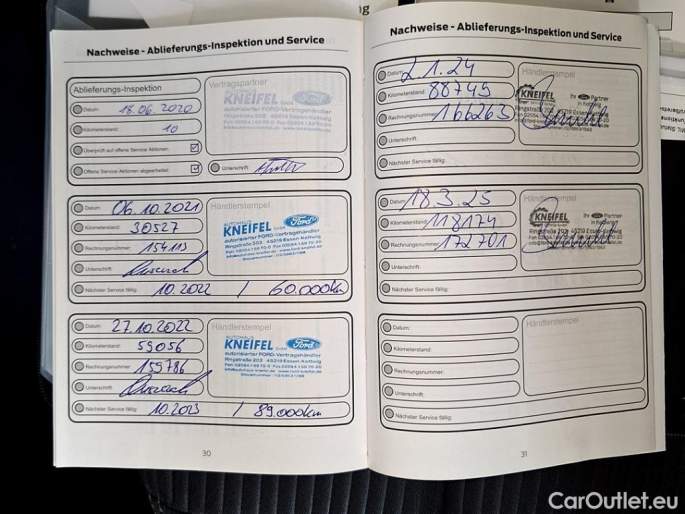 Nachweise - Ablieferungs-Inspektion und Service
Ablieferungs-Inspektion
Datum: 18.06.2020
Kilometerstand: 10
Überprüft auf offene Service Aktionen:
Offene Service Aktionen abgearbeitet:
Vertragspartner
AUTOHAUS
KNEIFEL GmbH Ford
autorisierter FORD-Vertragshändler
Unterschrift:
Datum: 06.10.2021
Kilometerstand: 30527
Rechnungsnummer: 154113
Unterschrift:
Nächster Service fällig: 10.2022 / 60.000km
Händlerstempel
AUTOHAUS
KNEIFEL GmbH Ford
autorisierter FORD-Vertragshändler
Ringstraße 203 45219 Essen-Kettwig
Datum: 27.10.2022
Kilometerstand: 59056
Rechnungsnummer: 159786
Unterschrift:
Nächster Service fällig: 10.2023 / 89.000km
Händlerstempel
AUTOHAUS
KNEIFEL GmbH Ford
autorisierter FORD-Vertragshändler
Ringstraße 203 45219 Essen-Kettwig
30
Nachweise - Ablieferungs-Inspektion und Service
Datum: 2.1.24
Kilometerstand: 88745
Rechnungsnummer: 166263
Unterschrift:
Nächster Service fällig:
Händlerstempel
KNEIFEL
Ihr Partner
in Kettwig
Datum: 18.3.25
Kilometerstand: 118174
Rechnungsnummer: 172701
Unterschrift:
Nächster Service fällig:
Händlerstempel
KNEIFEL
Ihr Partner
in Kettwig
Datum:
Kilometerstand:
Rechnungsnummer:
Unterschrift:
Nächster Service fällig:
Händlerstempel
31
CarOutlet.eu